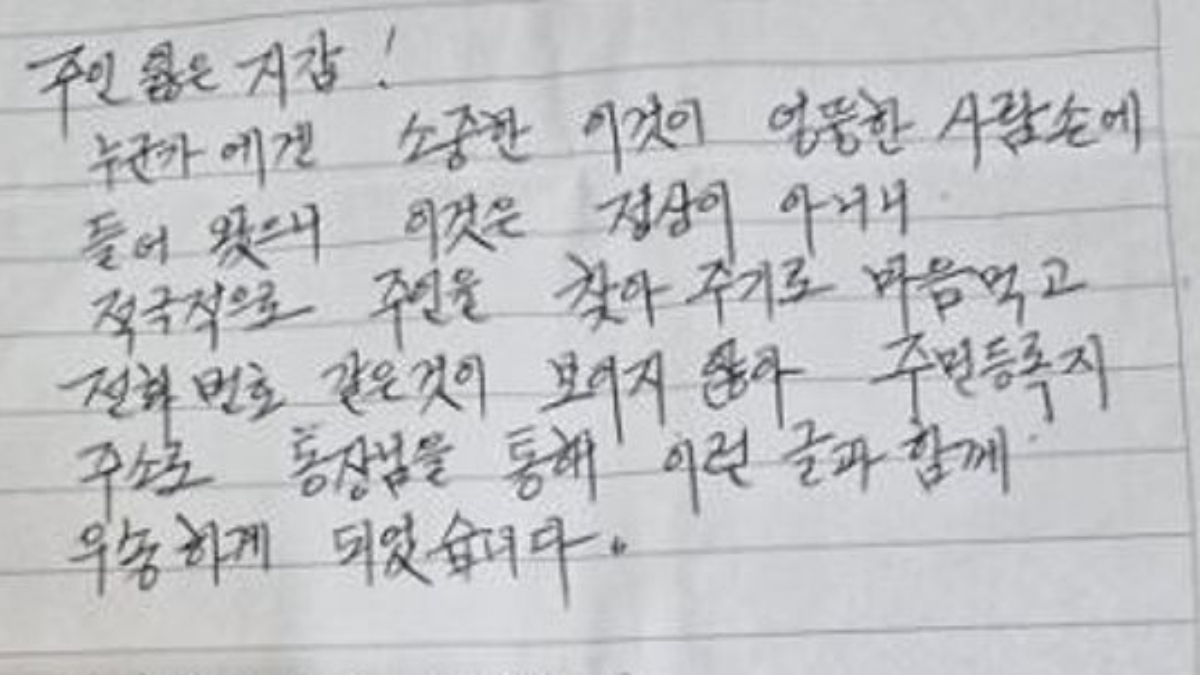 주인 잃은 지갑!
누군가 에겐 소중한 이것이 엉뚱한 사람손에
들어 왔으니 이것은 정상이 아니니
적극적으로 주인을 찾아 주기로 마음먹고
전화 번호 같은것이 보이지 않아 주민등록지
주소로 통장님을 통해 이런 글과 함께
우송하게 되었습니다.